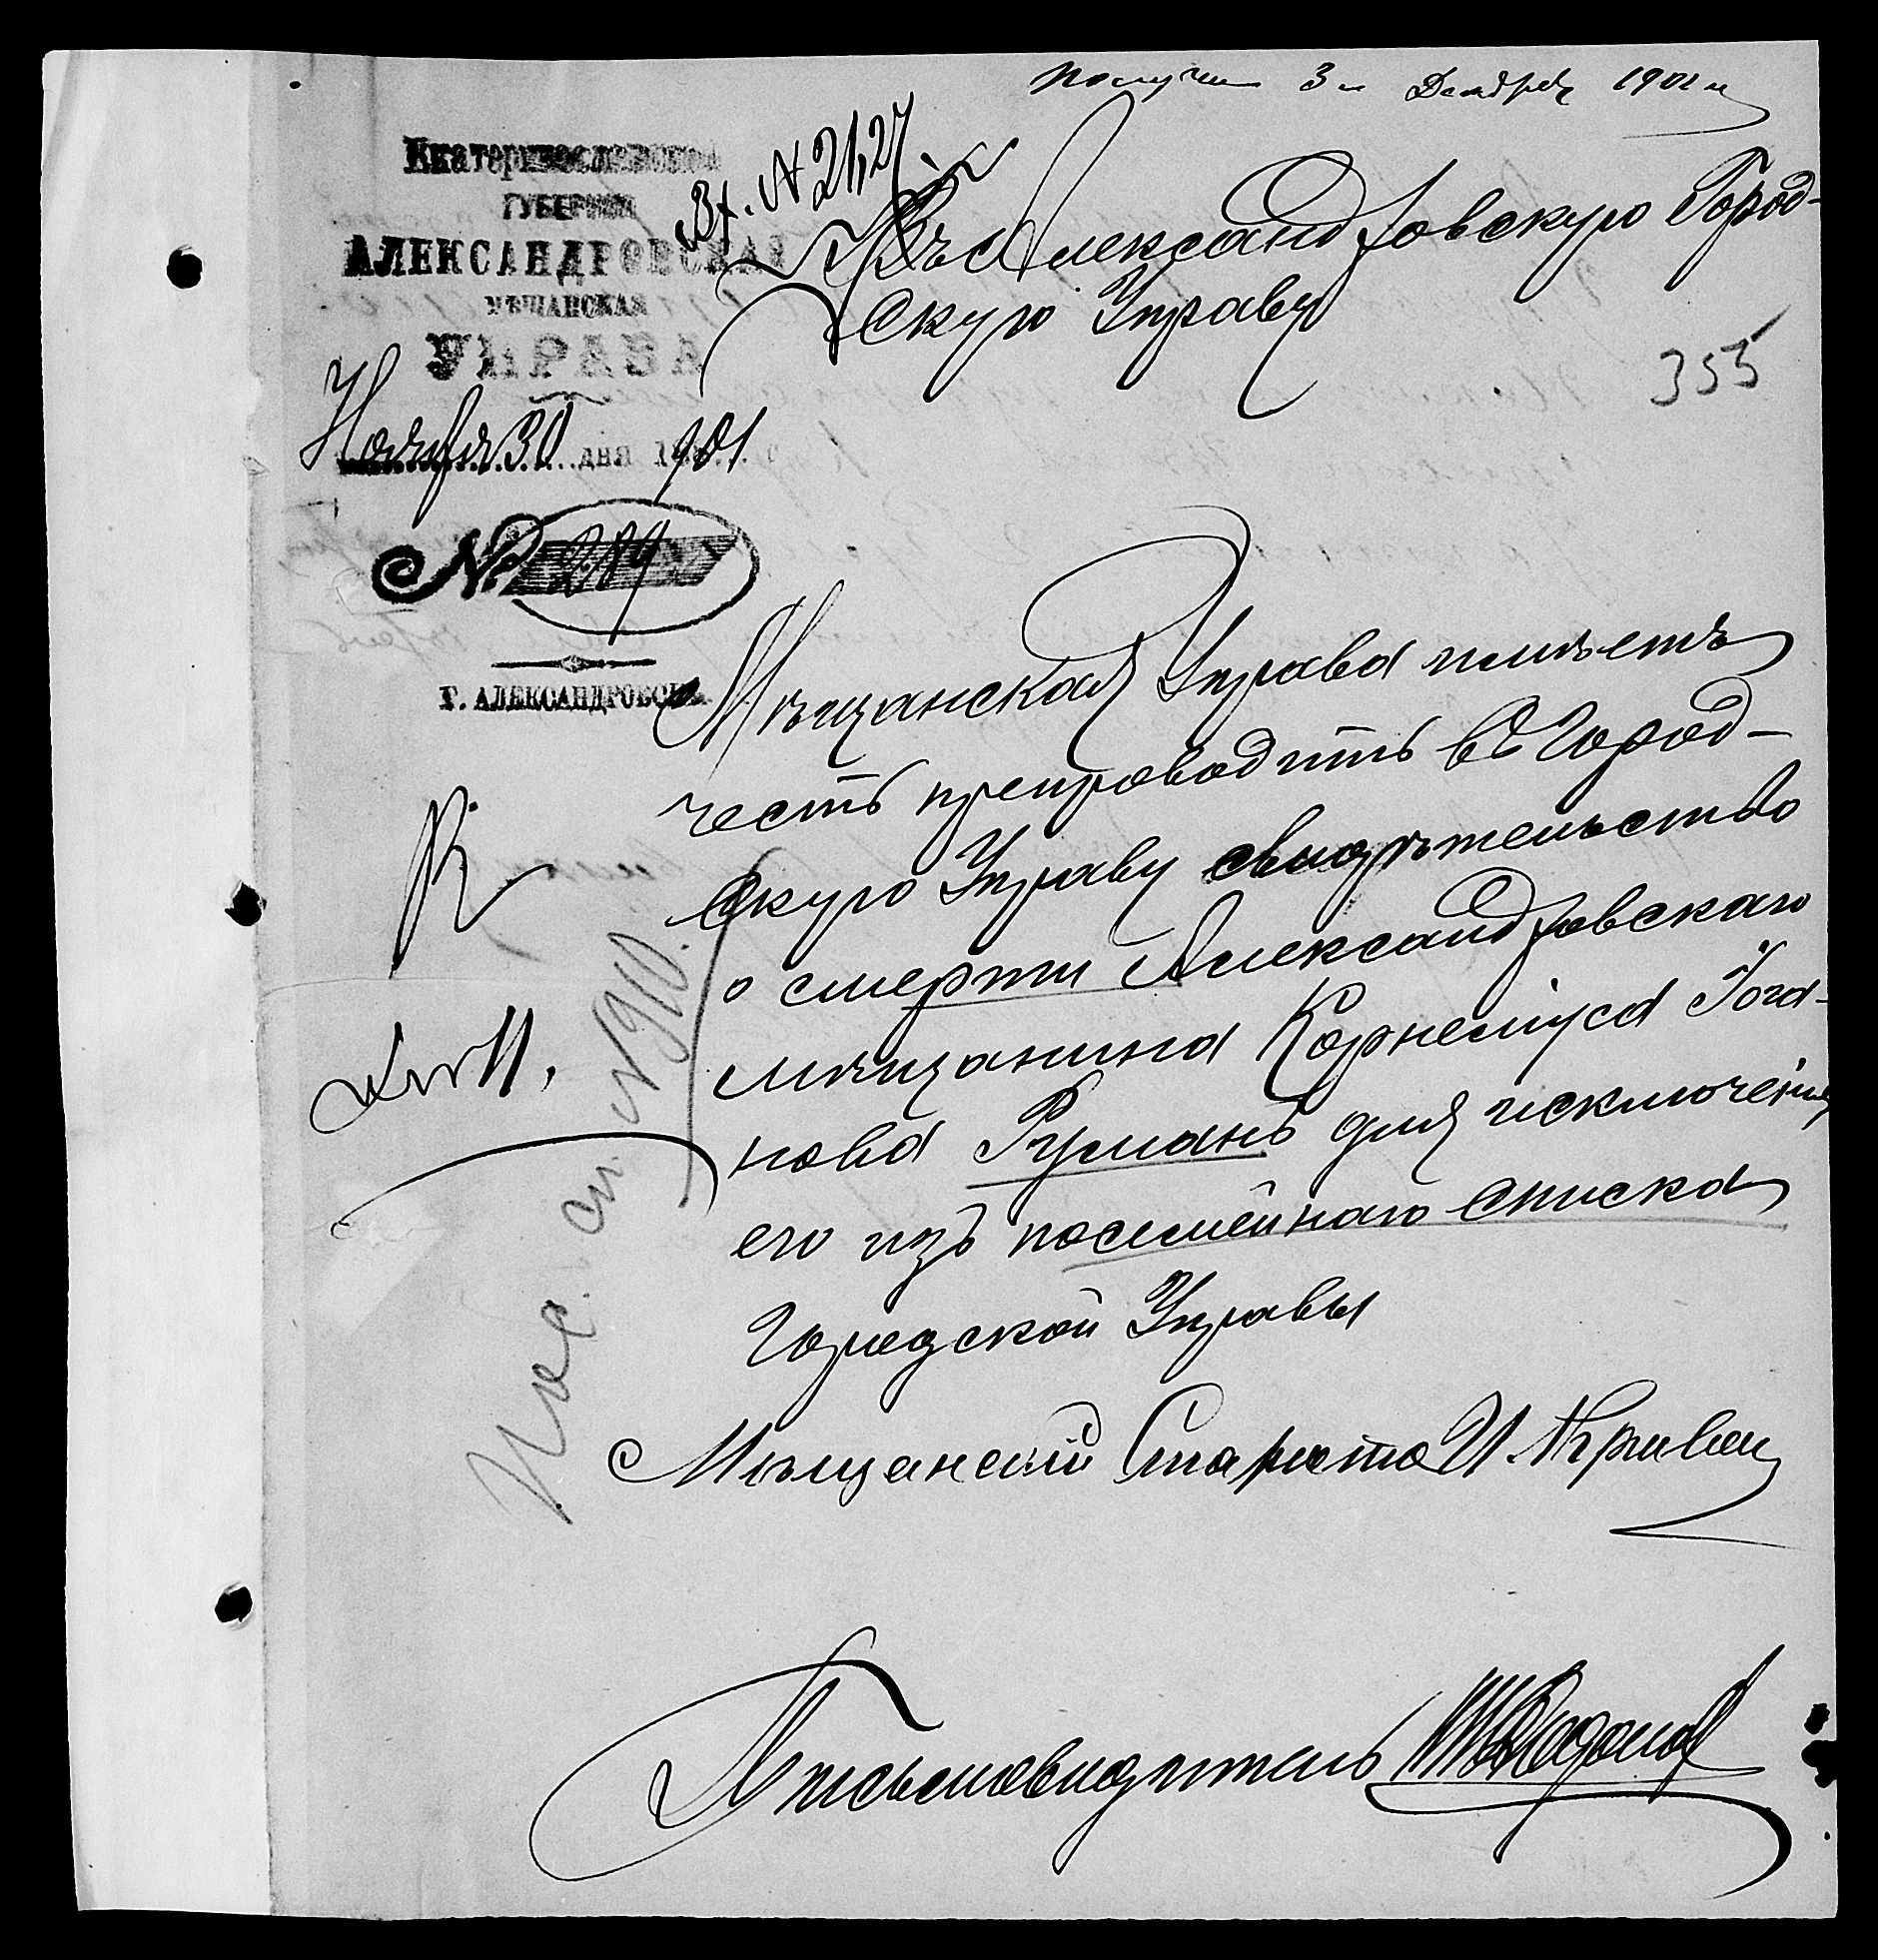 Получен 3 Декабря 1901 г
Вх. № 2127
Екатеринославской
ГУБЕРНІИ
АЛЕКСАНДРОВСКАЯ
МѢЩАНСКАЯ
УПРАВА
Ноября 30 дня 1901
№ 289
Г. АЛЕКСАНДРОВСКЪ
Въ Александровскую Город-
скую Управу
355
Мѣщанская Управа имѣетъ
честь препроводить въ Город-
скую Управу свидѣтельство
о смерти Александровскаго
мѣщанина Корнеліуса Іога-
нова Румань для исключенія
его изъ посемейнаго списка
Городской Управы
Пос. сп. № 910.
Мѣщанскій Староста И. Кривен
Письмоводитель